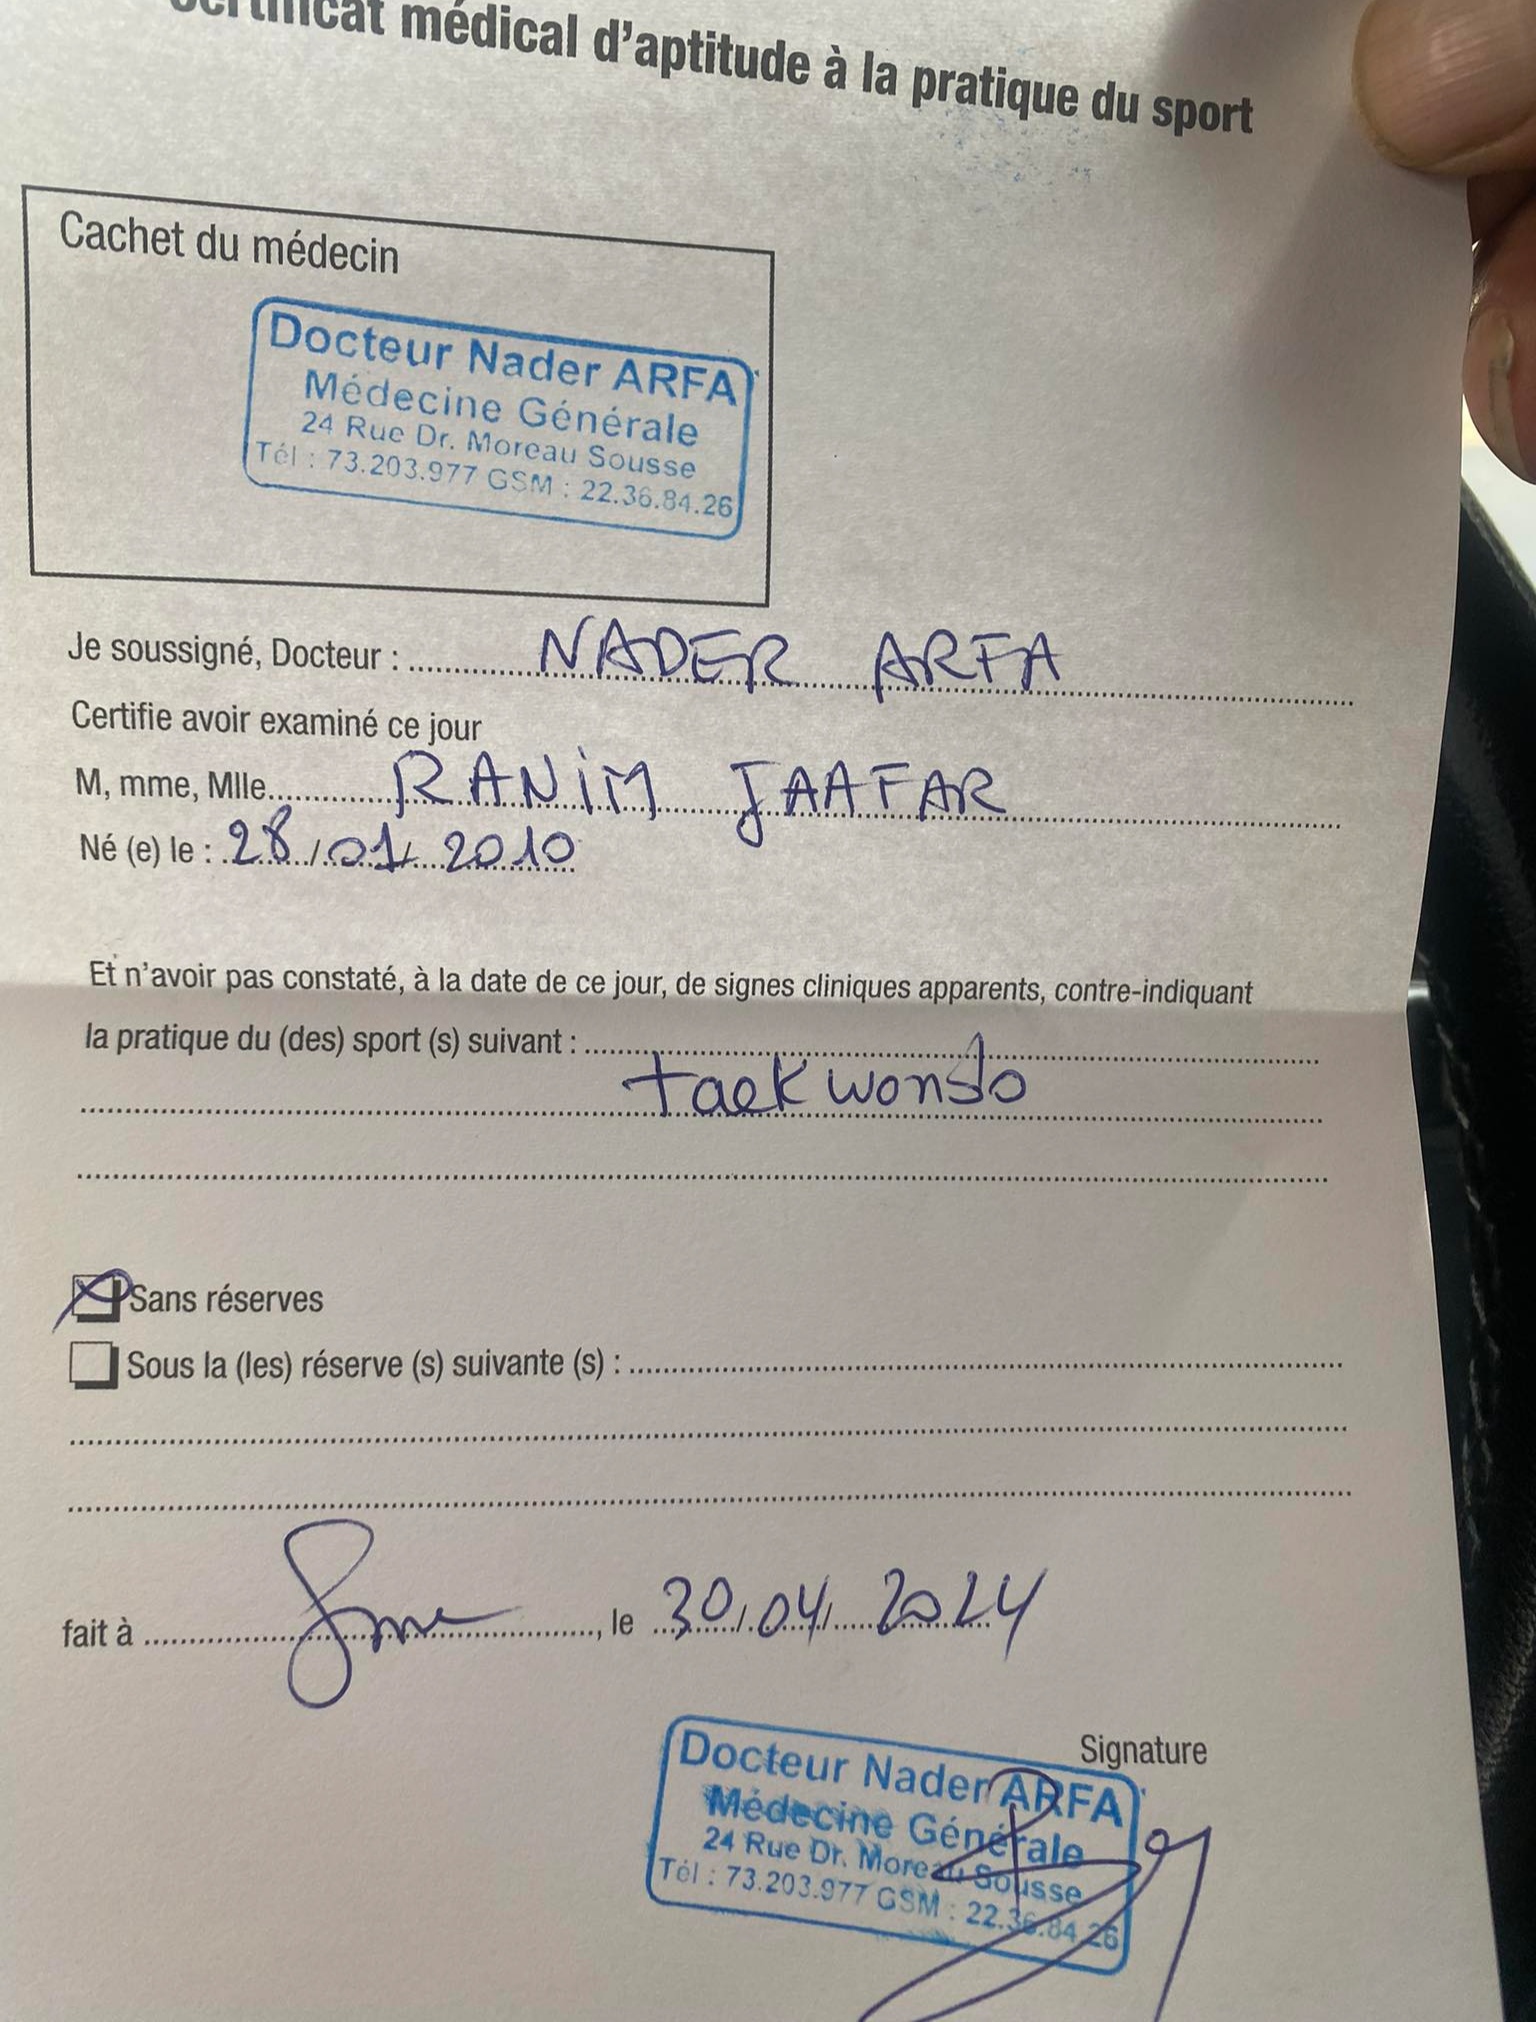 Certificat médical d'aptitude à la pratique du sport
Cachet du médecin
Docteur Nader ARFA
Médecine Générale
24 Rue Dr. Moreau Sousse
Tél : 73.203.977 GSM : 22.36.84.26
Je soussigné, Docteur : NADER ARFA
Certifie avoir examiné ce jour
M, mme, Mlle RANIM JAAFAR
Né (e) le : 28/01/2010
Et n'avoir pas constaté, à la date de ce jour, de signes cliniques apparents, contre-indiquant
la pratique du (des) sport (s) suivant :
taekwondo
Sans réserves
Sous la (les) réserve (s) suivante (s) :
fait à , le 30/04/2024
Signature
Docteur Nader ARFA
Médecine Générale
24 Rue Dr. Moreau Sousse
Tél : 73.203.977 GSM : 22.36.84.26